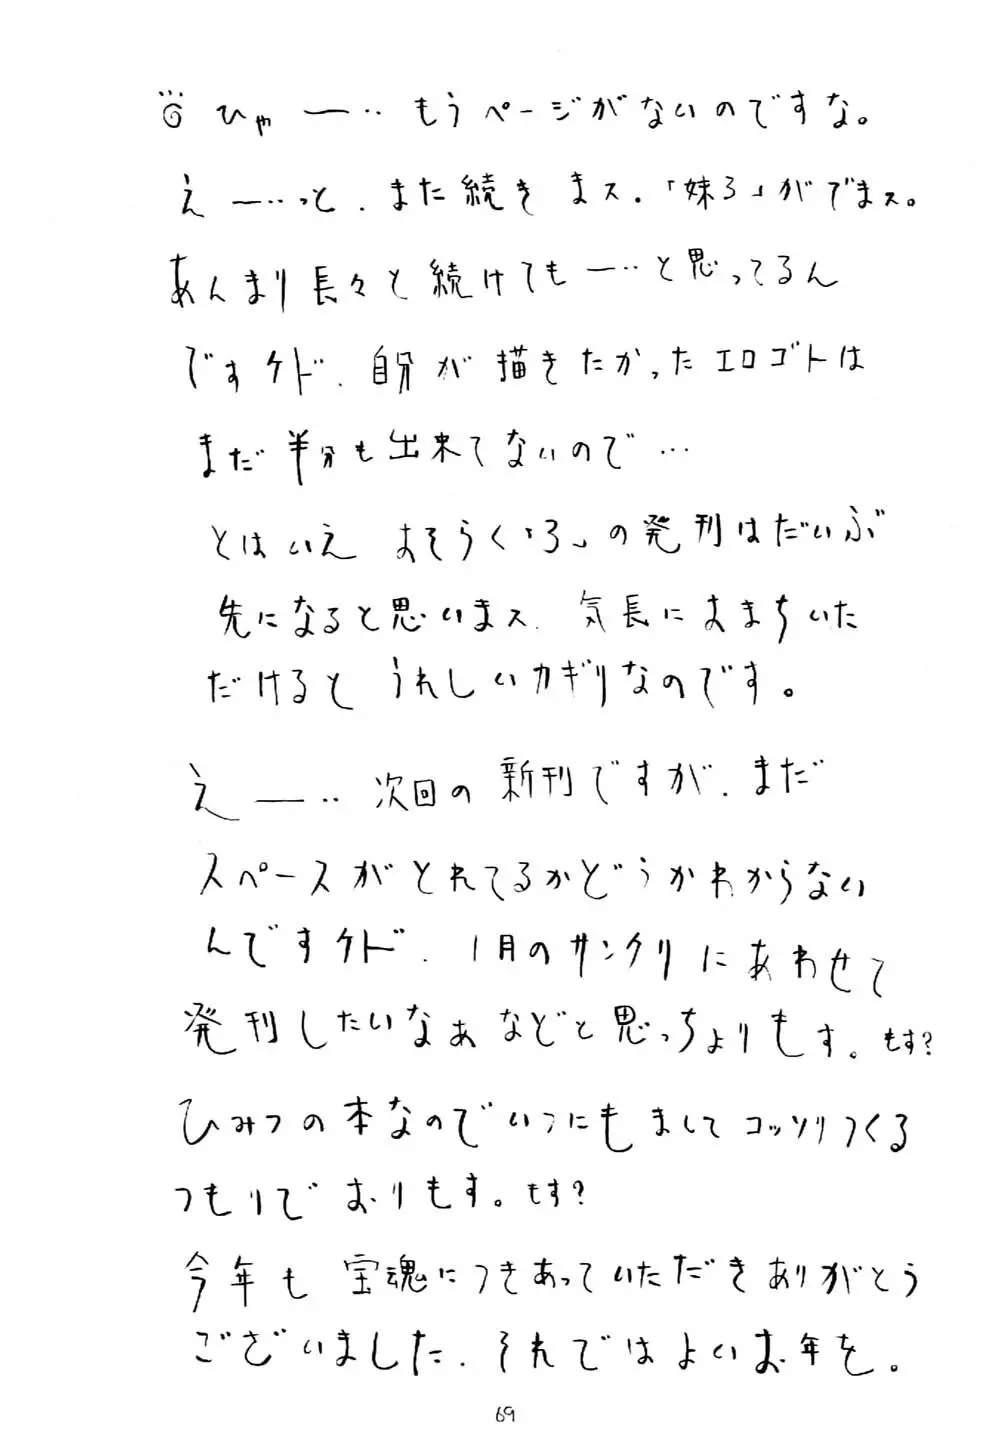 ひゃー‥もうページがないのですな。
え－…っと、また続きまス。「妹3」がでまス。
あんまり長々と続けても－‥と思ってるん
ですケド、自分が描きたかったエロゴトは
まだ半分も出来てないので…
とはいえ おそらく「3」の発刊はだいぶ
先になると思いまス、気長におまちいた
だけると うれしいカギリなのです。
え－‥次回の新刊ですが、まだ
スペースがとれてるかどうかわからない
んですケド、1月のサンクリにあわせて
発刊したいなぁなどと思っちょりもす。もす?
ひみつの本なのでいつにもましてコッソリつくる
つもりでおりもす。もす?
今年も 宝魂につきあっていただきありがとう
ございました、それではよいお年を。
69